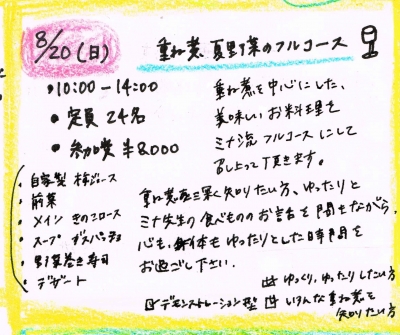 8/20(日)
重ね煮 夏野菜のフルコース
・10:00-14:00
・定員 24名
・参加費 ¥8000
重ね煮を中心にした、
美味しいお料理を
ミナ流フルコースにして
召し上って頂きます。
・自家製 梅ジュース
・前菜
・メイン きのこロース
・スープ ガスパッチョ
・野菜巻き寿司
・デザート
重ね煮を深く知りたい方、ゆったりと
ミナ先生の食べもののお話を聞きながら、
心も身体もゆったりとした時間を
お過ごし下さい。
☑ ゆっくり、ゆったりしたい方
☑ デモンストレーション型
☑ いろんな重ね煮を
知りたい方